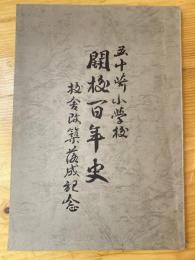 五十崎小学校
開校百年史
校舎改築落成記念